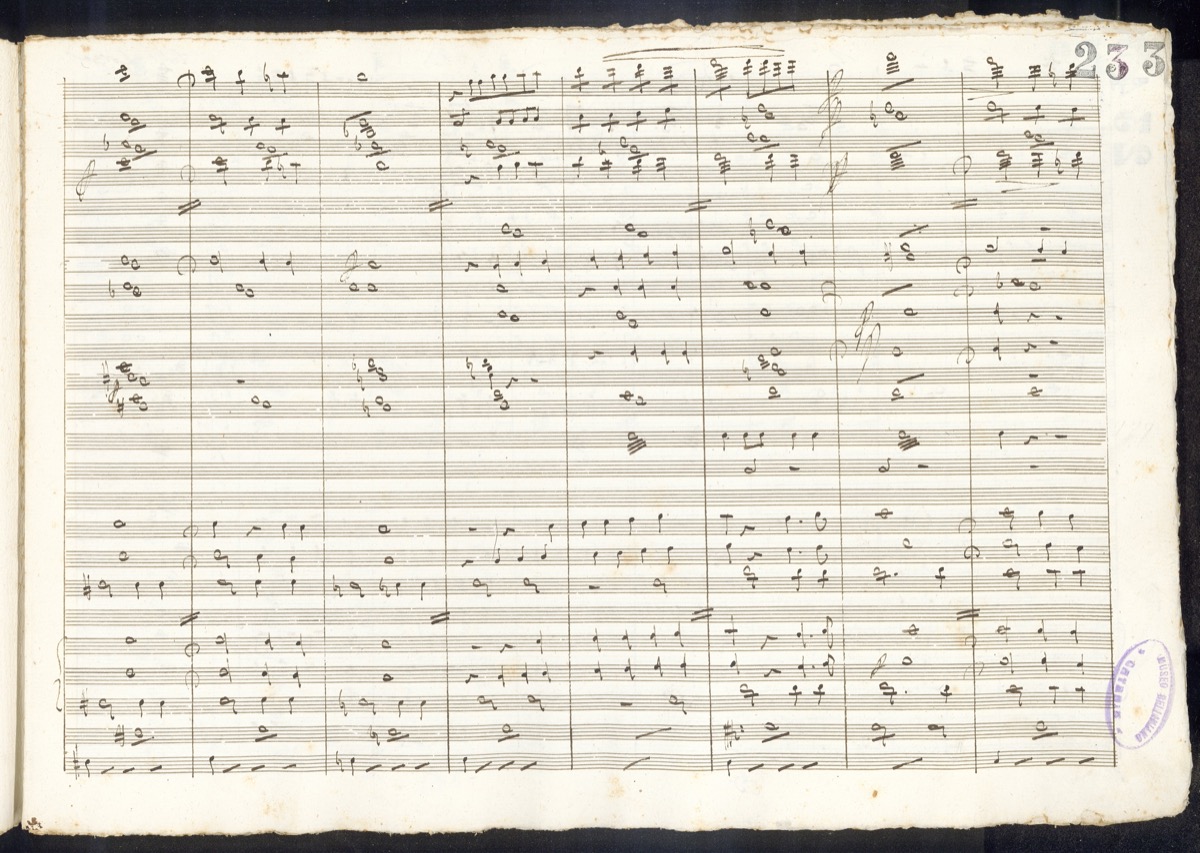 233
MUSEO BELLINIANO
* CATANIA *